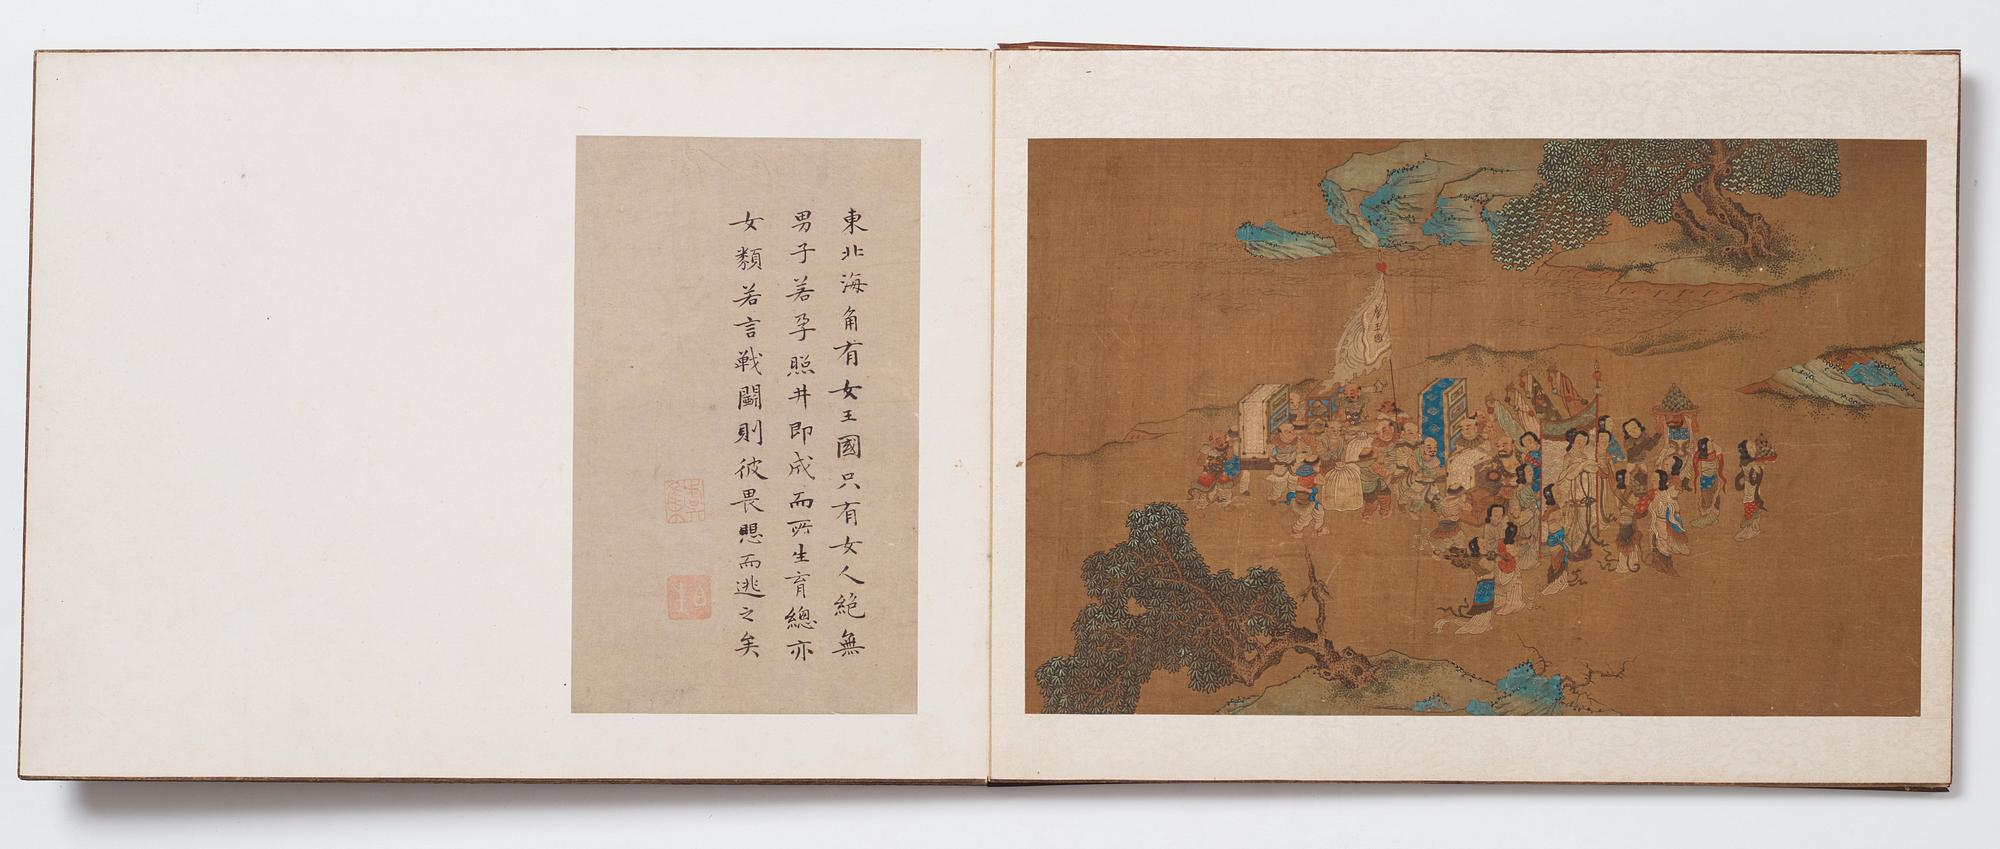 東北海角有女王國只有女人絕無
男子若孕照井即成而所生育總亦
女類若言戰鬬則彼畏思而逃之矣
女王國